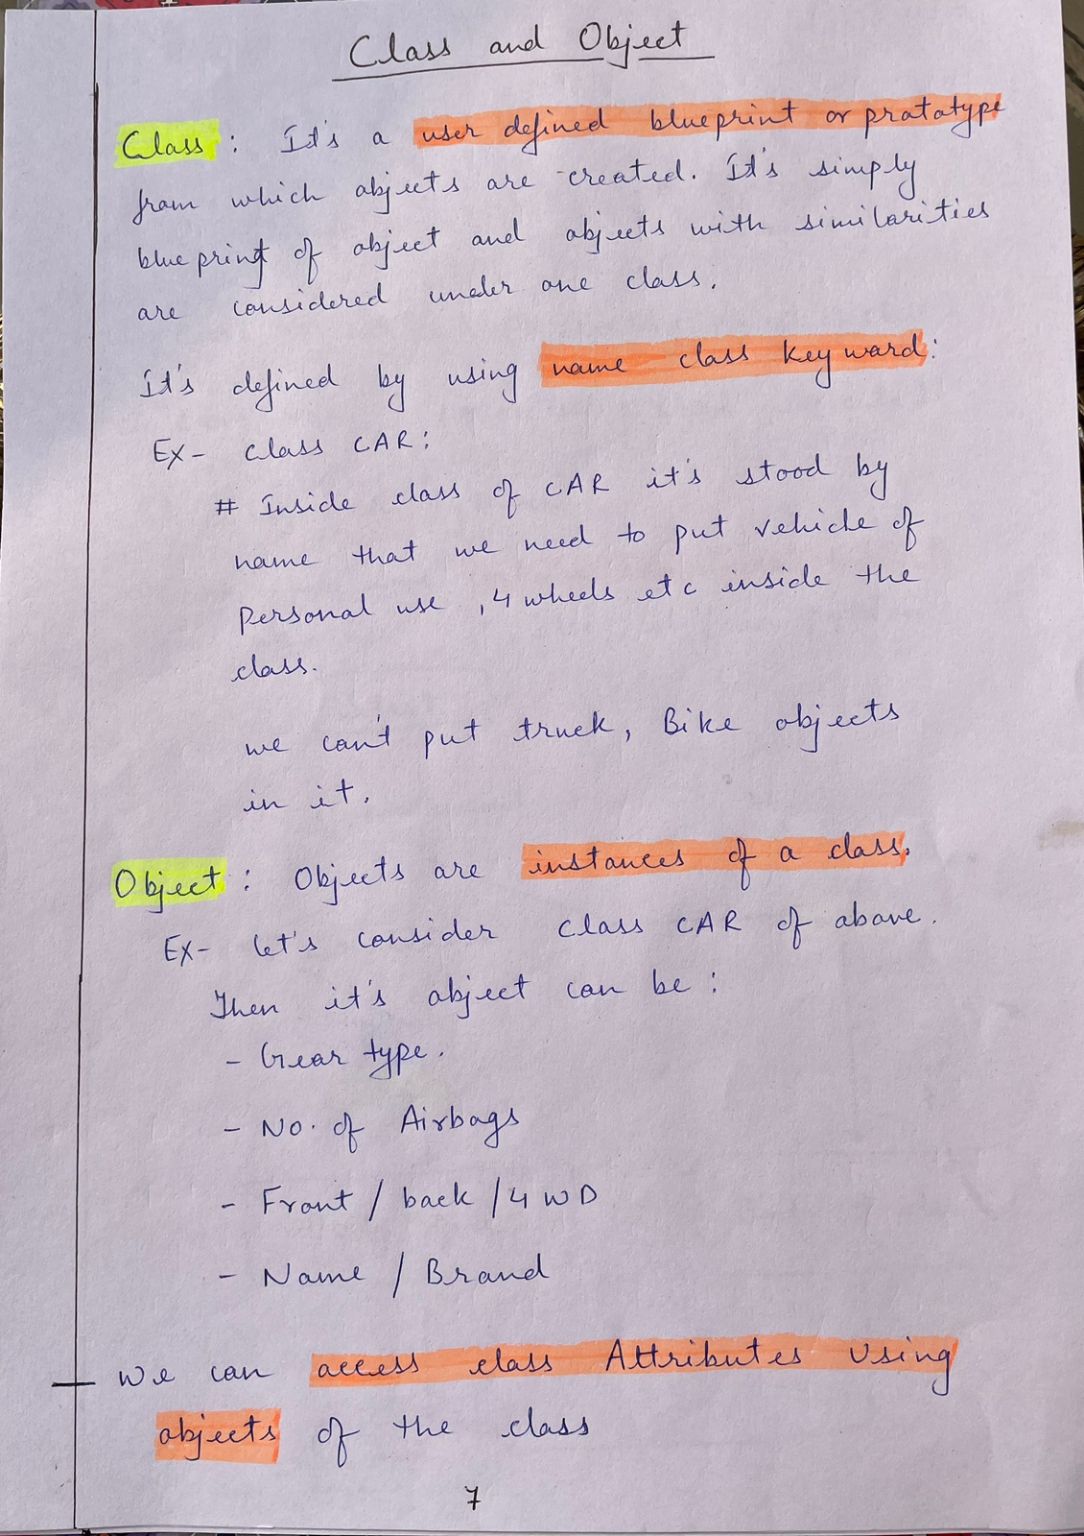 Class and Object
Class : It's a user defined blueprint or pratatype
from which objects are created. It's simply
blueprint of object and objects with similarities
are considered under one class.
It's defined by using name class keyward:
Ex- class CAR:
# Inside class of CAR it's stood by
name that we need to put vehicle of
personal use , 4 wheels etc inside the
class.
we can't put truck, Bike objects
in it.
Object : Objects are instances of a class.
Ex- let's consider class CAR of above.
Then it's object can be :
- Gear type.
- No. of Airbags
- Front / back / 4 WD
- Name / Brand
we can access class Attributes Using
objects of the class
7